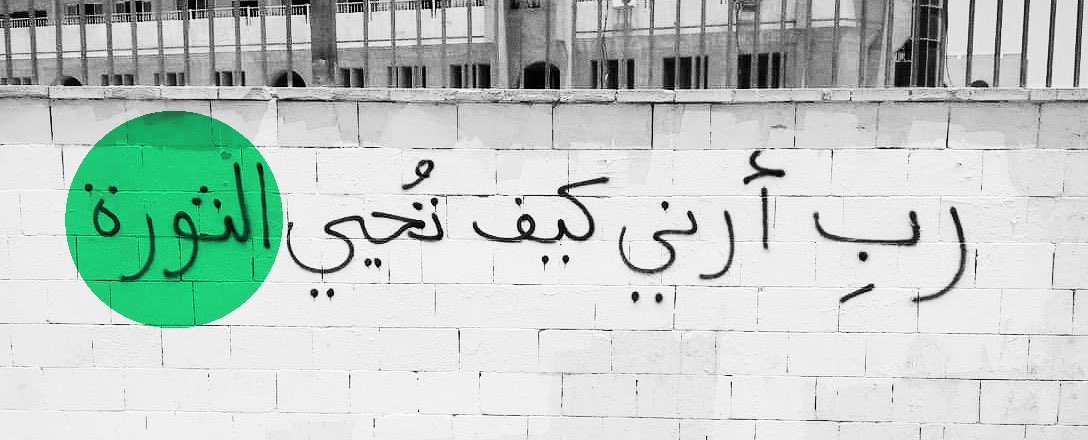 ربِ أرني كيف نُحيي الثورة